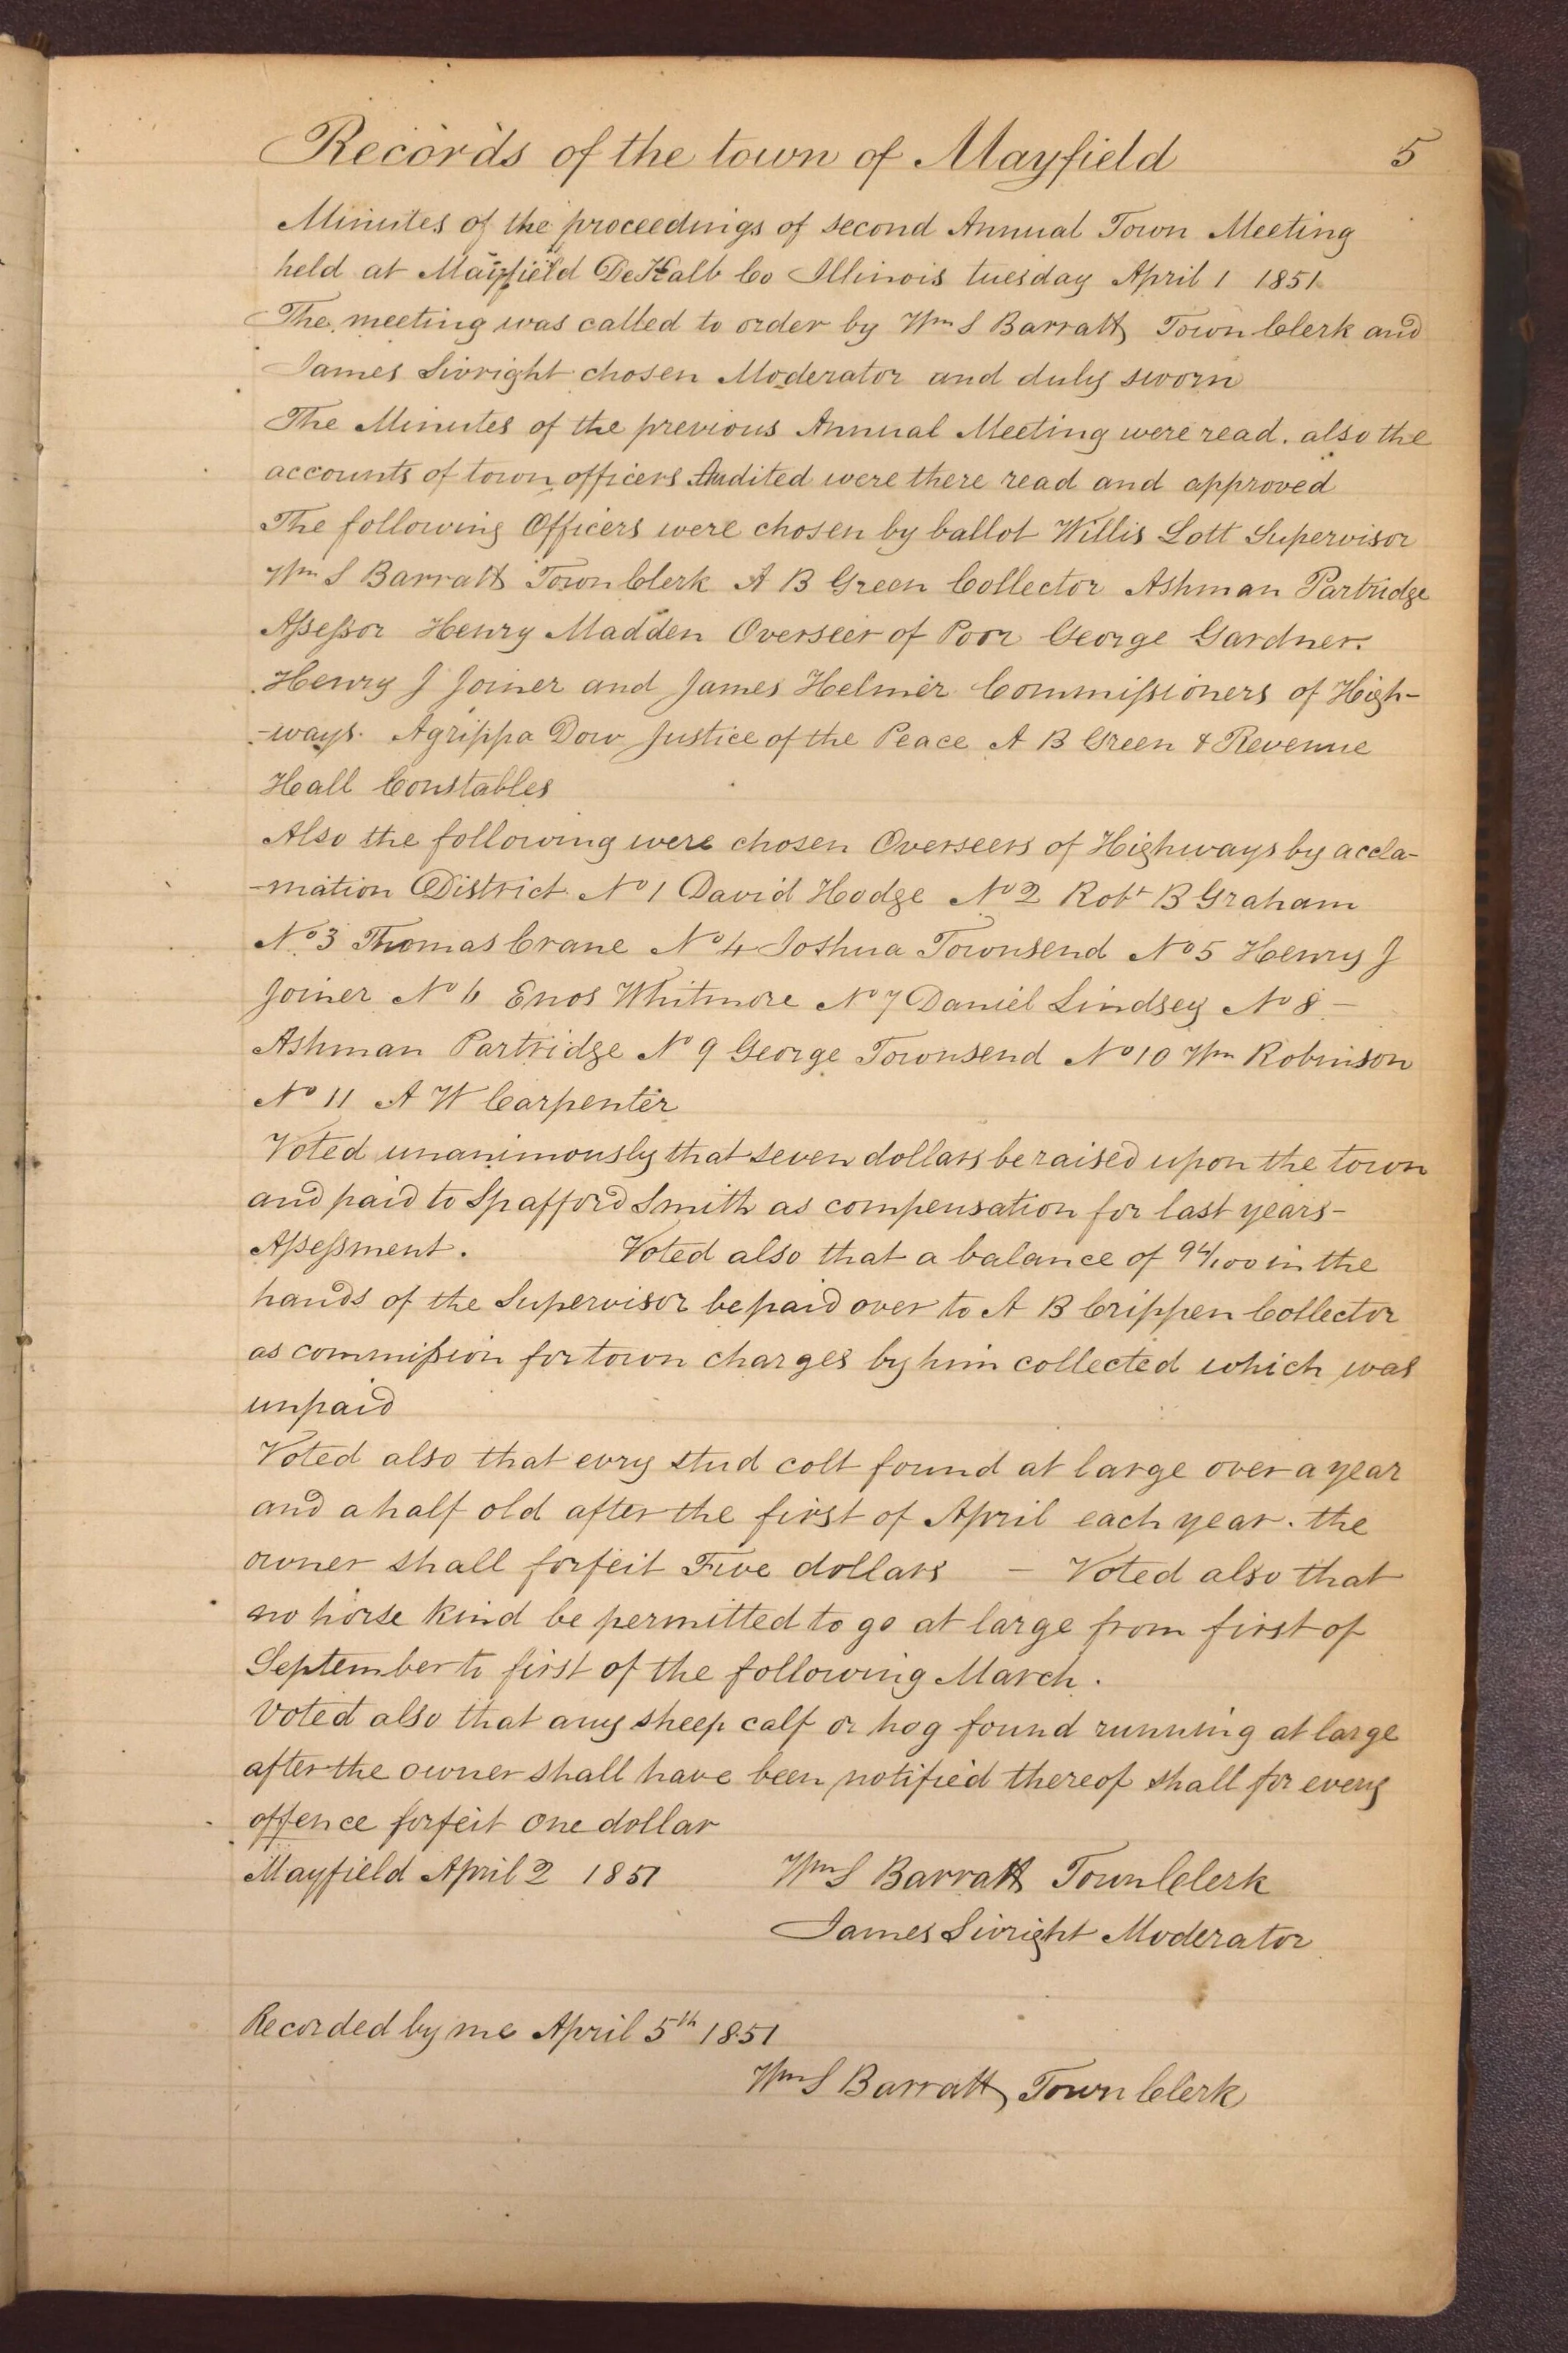 Records of the town of Mayfield 5
Minutes of the proceedings of second Annual Town Meeting
held at Mayfield DeKalb Co Illinois tuesday April 1 1851
The meeting was called to order by Wm S Barratt Town Clerk and
James Sivright chosen Moderator and duly sworn
The Minutes of the previous Annual Meeting were read. also the
accounts of town officers Audited were there read and approved
The following Officers were chosen by ballot Willis Lott Supervisor
Wm S Barratt Town Clerk A B Green Collector Ashman Partridge
Assessor Henry Madden Overseer of Poor George Gardner.
Henry J Joiner and James Helmer Commissioners of High-
-ways. Agrippa Dow Justice of the Peace A B Green & Revenue
Hall Constables
Also the following were chosen Overseers of Highways by accla-
-mation District No 1 David Hodge No 2 Robt B Graham
No 3 Thomas Crane No 4 Joshua Townsend No 5 Henry J
Joiner No 6 Enos Whitmore No 7 Daniel Lindsey No 8 -
Ashman Partridge N 9 George Townsend No 10 Wm Robinson
No 11 A W Carpenter
Voted unanimously that seven dollars be raised upon the town
and paid to Spafford Smith as compensation for last years-
Assessment. Voted also that a balance of 94/100 in the
hands of the Supervisor be paid over to A B Crippen Collector
as commission for town charges by him collected which was
unpaid
Voted also that evry stud colt found at large over a year
and a half old after the first of April each year. the
owner shall forfeit Five dollars - Voted also that
no horse kind be permitted to go at large from first of
September to first of the following March.
Voted also that any sheep calf or hog found running at large
after the owner shall have been notified thereof shall for every
offence forfeit one dollar
Mayfield April 2 1851 Wm S Barratt Town Clerk
James Sivright Moderator
Recorded by me April 5th 1851
Wm S Barratt Town Clerk